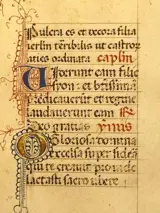 Pulcra es et decora filia
ierl'm terribilis ut castror
acies ordinata
Viderunt eam filie
syon et b'issima
predicaverunt et regine
laudaverunt eam
Deo gratias
O Gloriosa domina
excelsa super sidera
qui te creavit provide
lactasti sacro ubere